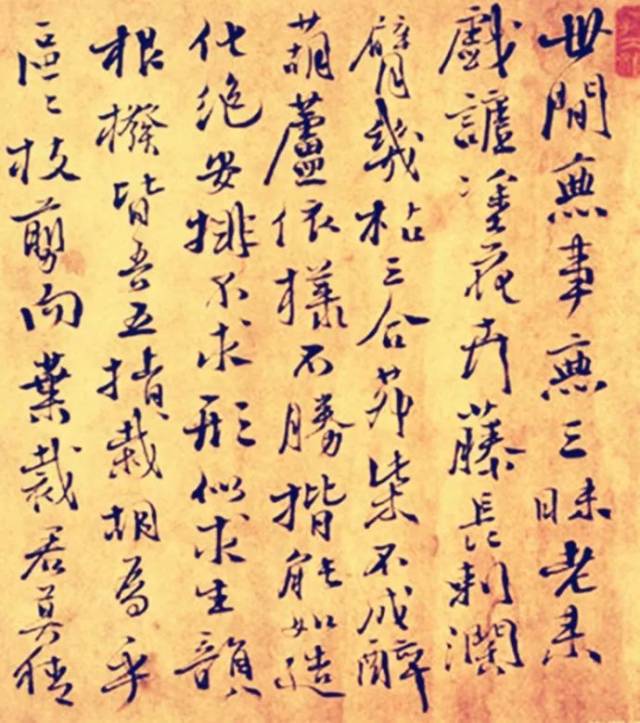 世間無事無三昧老來
戲謔塗花卉藤長刺濶
臂幾枯三合茅柴不成醉
葫蘆依樣不勝揩能如造
化絕安排不求形似求生韻
根撥皆吾五指栽胡為乎
區〻枝剪向葉裁君莫猜